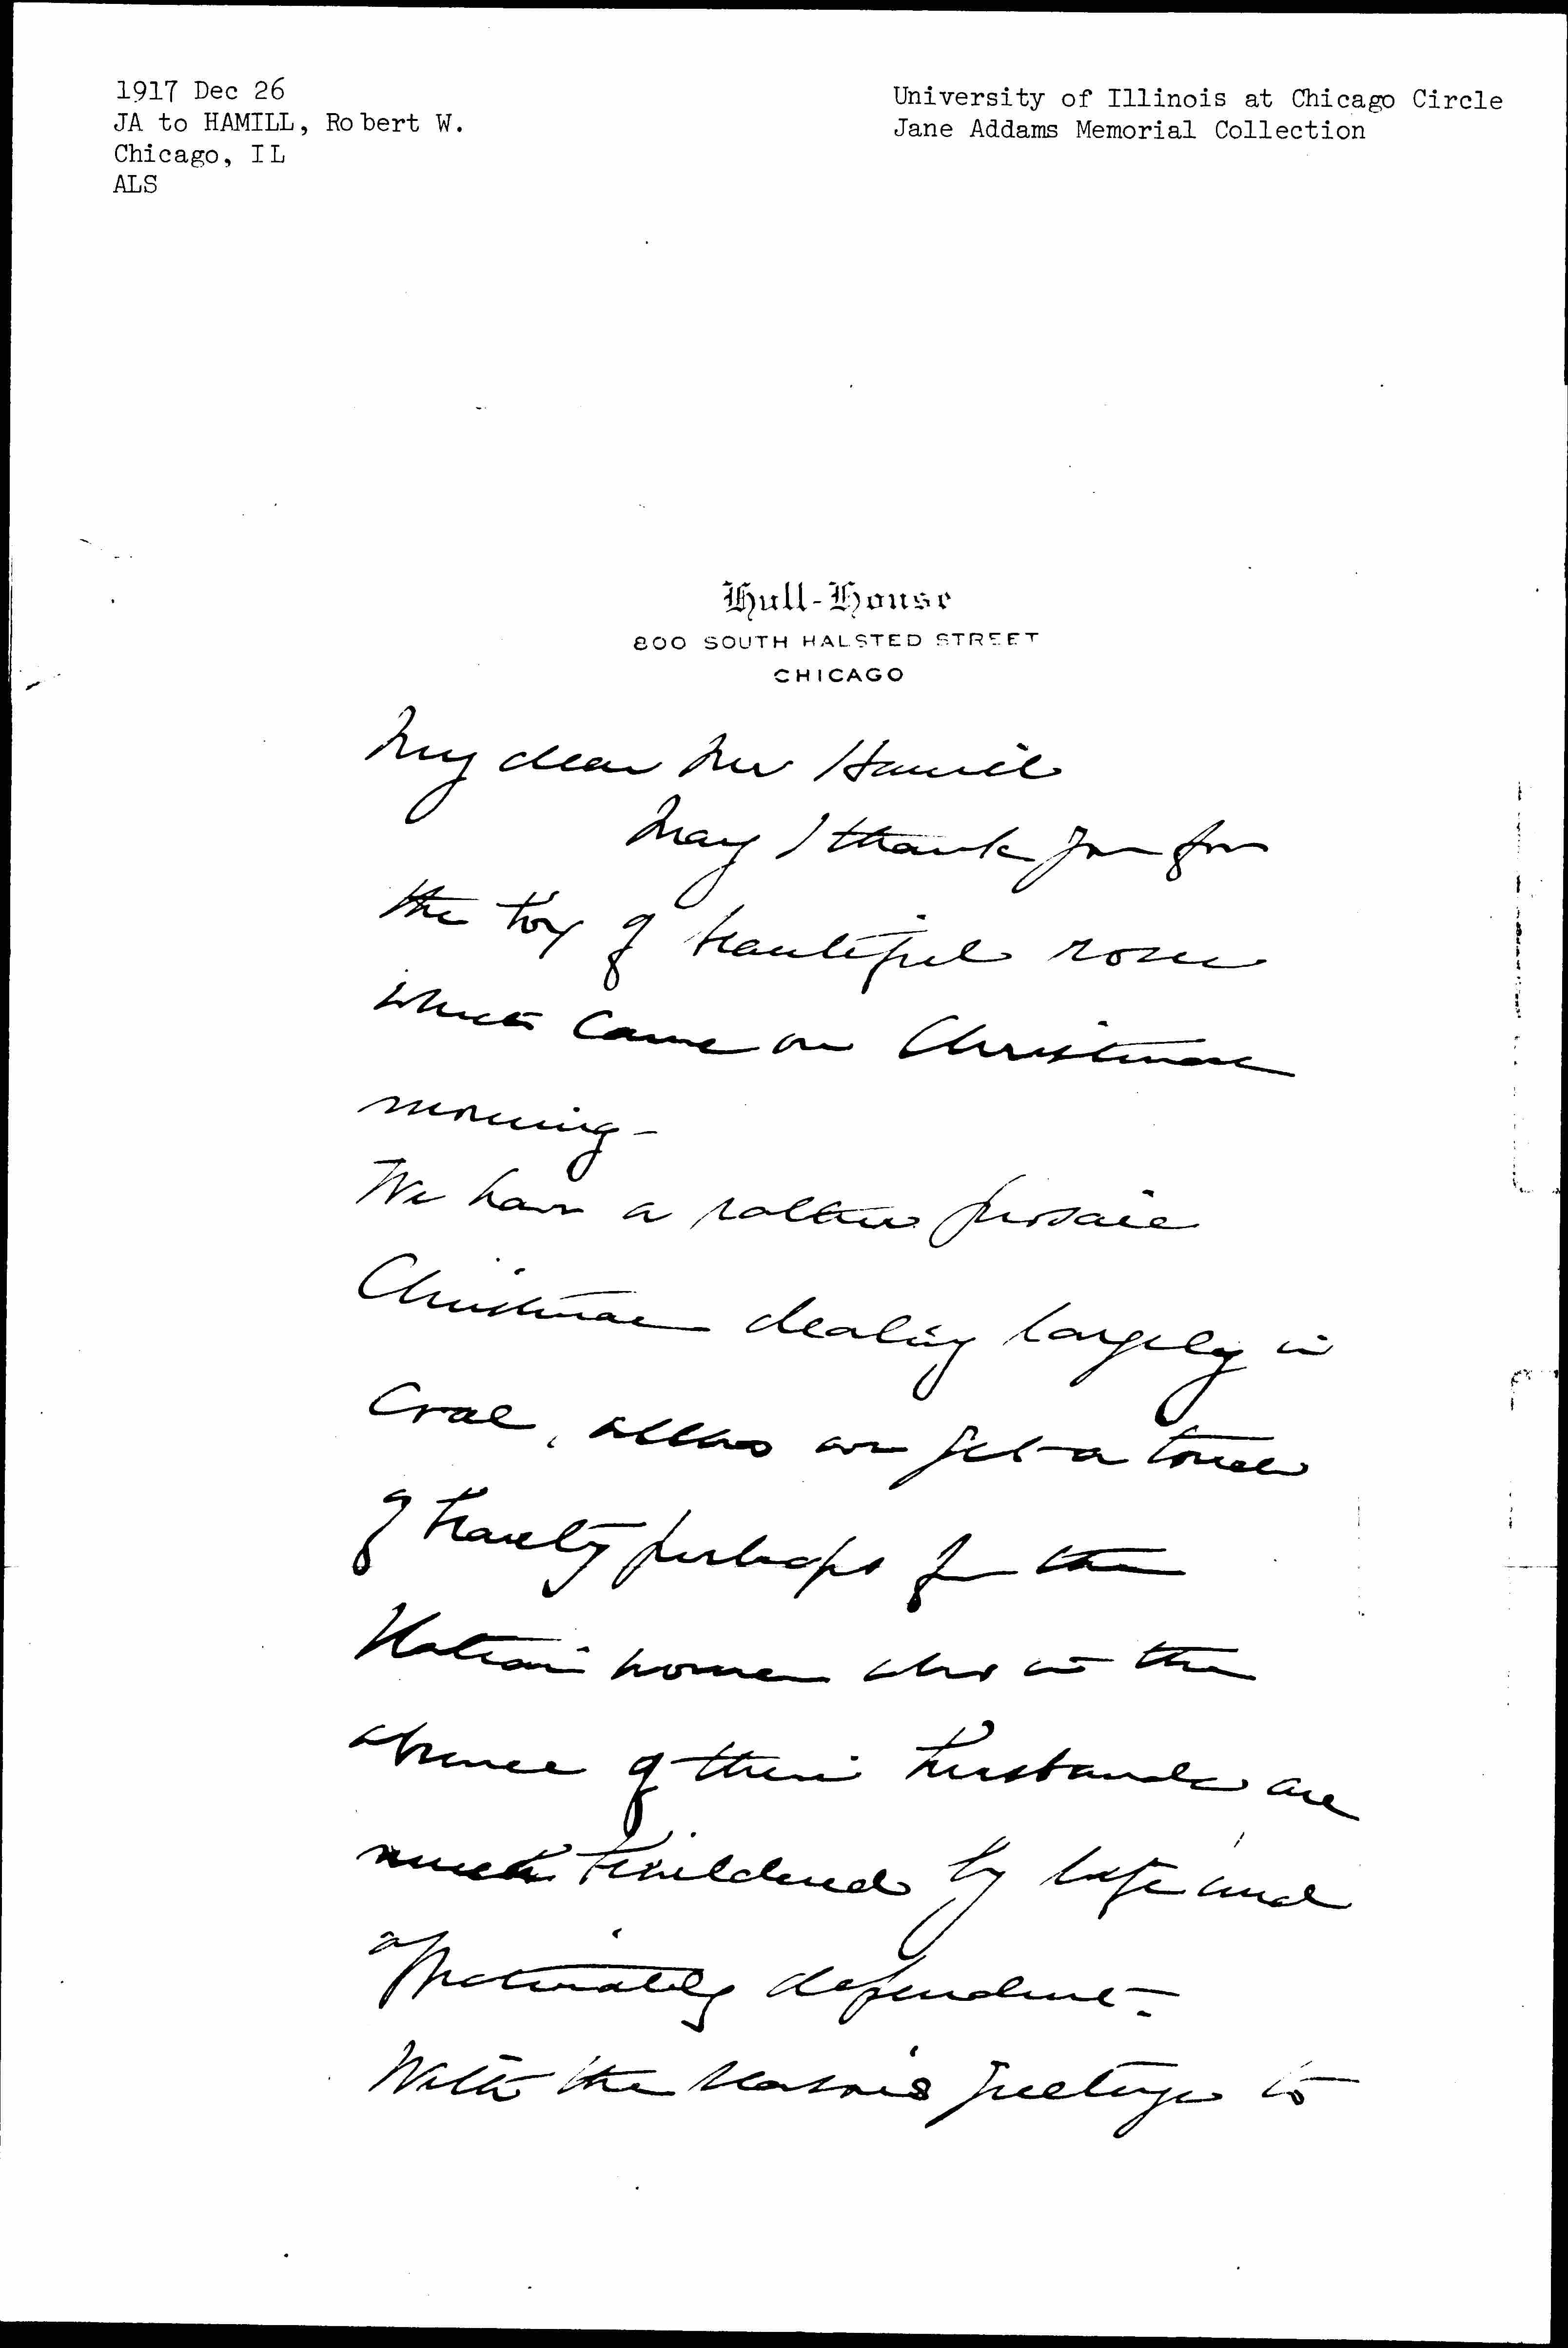 1917 Dec 26
JA to HAMILL, Robert W.
Chicago, IL
ALS
University of Illinois at Chicago Circle
Jane Addams Memorial Collection
Hull-House
800 SOUTH HALSTED STREET
CHICAGO
My dear Mr Hamill
May I thank you for
the box of beautiful roses
which came on Christmas
morning -
We have a rather prosaic
Christmas dealing largely in
coal, altho we get a touch
of beauty perhaps for the
Italian women who in the
absence of their husbands are
much bewildered by life and
dependent -
With the season's greetings to